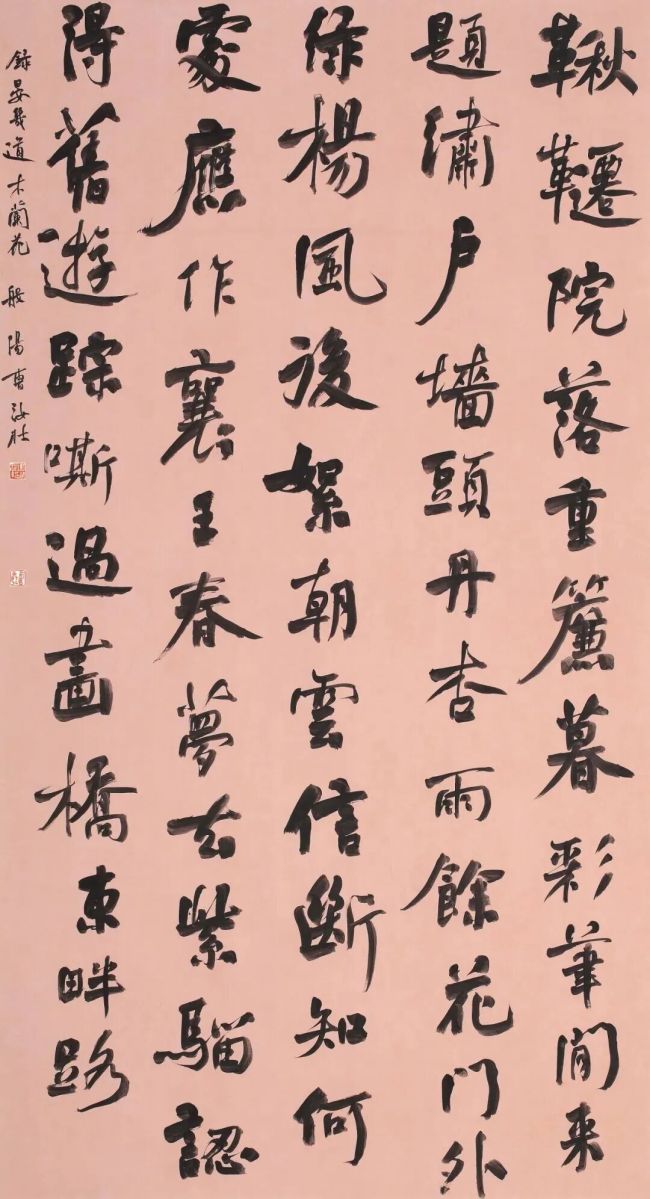 鞦韆院落重簾暮彩筆閒来
題繡户墻頭丹杏雨餘花門外
绿楊風後絮朝雲信斷知何
處應作襄王春夢去紫騮認
得舊遊蹤嘶過畫橋東畔路
録晏幾道木蘭花 般陽曹